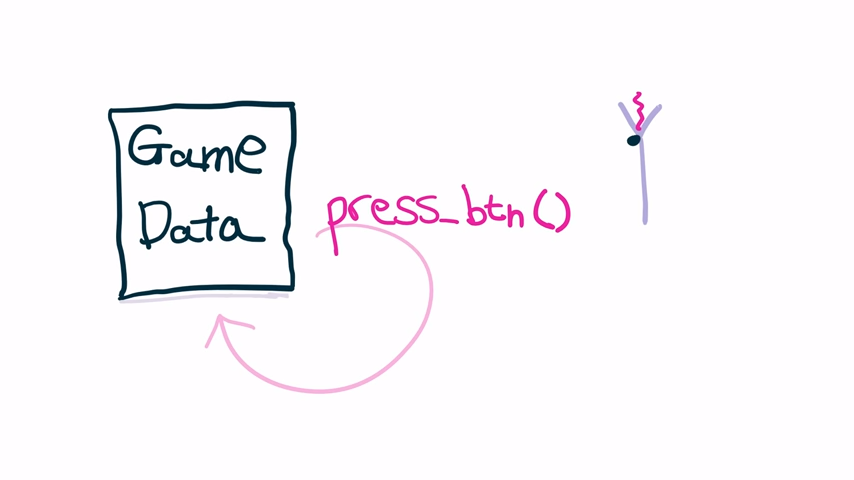 Game
Data
press_btn()